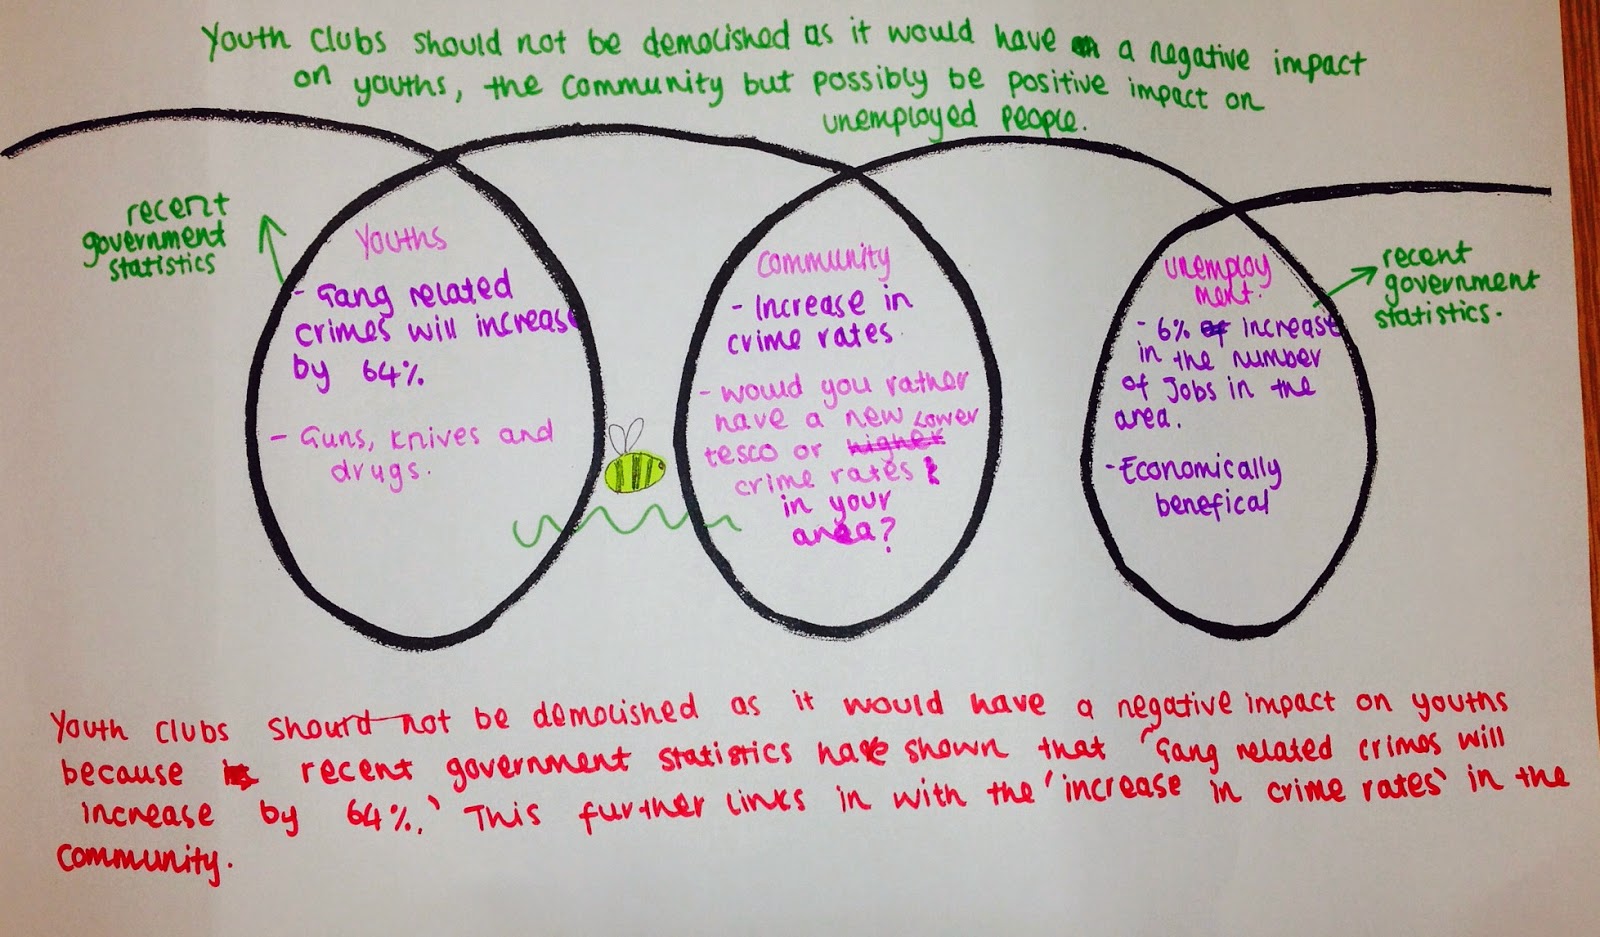 Youth clubs should not be demolished as it would have a negative impact
on youths, the community but possibly be positive impact on
unemployed people.
recent
government
statistics
Youths
- Gang related
crimes will increase
by 64%.
- Guns, knives and
drugs.
Community
- Increase in
crime rates.
- would you rather
have a new lower
tesco or higher
crime rates
in your
area?
unemploy
ment.
- 6% of increase
in the number
of Jobs in the
area.
- Economically
benefical
recent
government
statistics.
Youth clubs should not be demolished as it would have a negative impact on youths
because recent government statistics have shown that 'Gang related crimes will
increase by 64%.' This further links in with the 'increase in crime rates' in the
community.